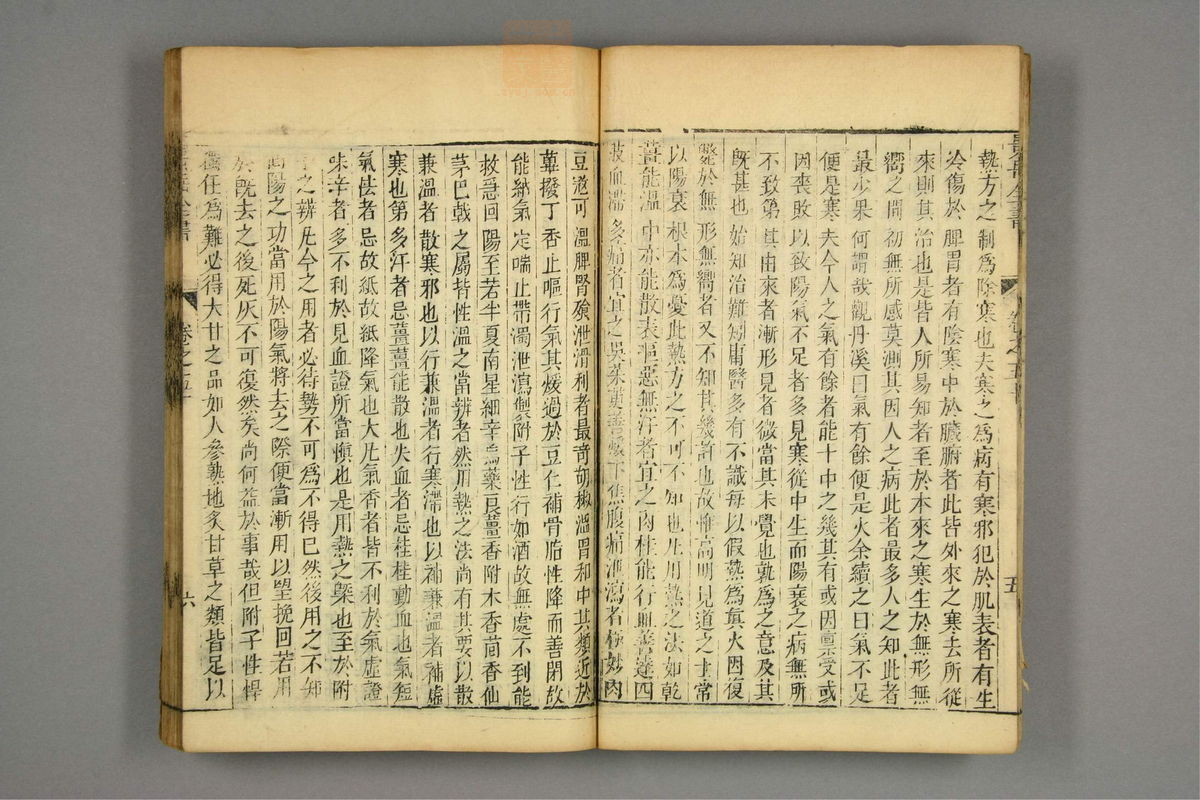 熱方之制為除寒也夫寒之為病有寒邪犯於肌表者有生
冷傷於脾胃者有陰寒中於臟腑者此皆外來之寒去所從
來則其治也是皆人所易知者至於本來之寒生於無形無
嚮之間初無所感莫測其因人之病此者最多人之知此者
最少果何謂哉觀丹溪曰氣有餘便是火余續之曰氣不足
便是寒夫今人之氣有餘者能十中之幾其有或因禀受或
因喪敗以致陽氣不足者多見寒從中生而陽衰之病無所
不致第其由來者漸形見者微當其未覺也孰為之意及其
既甚也始知治難矧庸醫多有不識每以假熱為真火因復
斃於無形無嚮者又不知其幾許也故惟高明見道之士常
以陽衰根本為憂此熱方之不可不知也凡用熱之法如乾
薑能溫中亦能散表嘔惡無汗者宜之肉桂能行血善達四
肢血滯多痛者宜之吳茱萸善暖下焦腹痛泄瀉者極妙肉
豆蔻可溫脾腎飱泄滑利者最奇胡椒溫胃和中其類近於
蓽撥丁香止嘔行氣其煖過於豆仁補骨脂性降而善閉故
能納氣定喘止帶濁泄瀉製附子性行如酒故無處不到能
救急回陽至若半夏南星細辛烏藥良薑香附木香茴香仙
茅巴戟之屬皆性溫之當辨者然用熱之法尚有其要以散
兼溫者散寒邪也以行兼溫者行寒滯也以補兼溫者補虛
寒也第多汗者忌薑薑能散也失血者忌桂桂動血也氣短
氣怯者忌故紙故紙降氣也大凡氣香者皆不利於氣虛證
味辛者多不利於見血證所當慎也是用熱之槩也至於附
子之辨凡今之用者必待勢不可為不得已然後用之不知
回陽之功當用於陽氣將去之際便當漸用以望挽回若用
於既去之後死灰不可復然矣尚何益於事哉但附子性悍
獨任為難必得大甘之品如人參熟地炙甘草之類皆足以
卷之五十
五
六